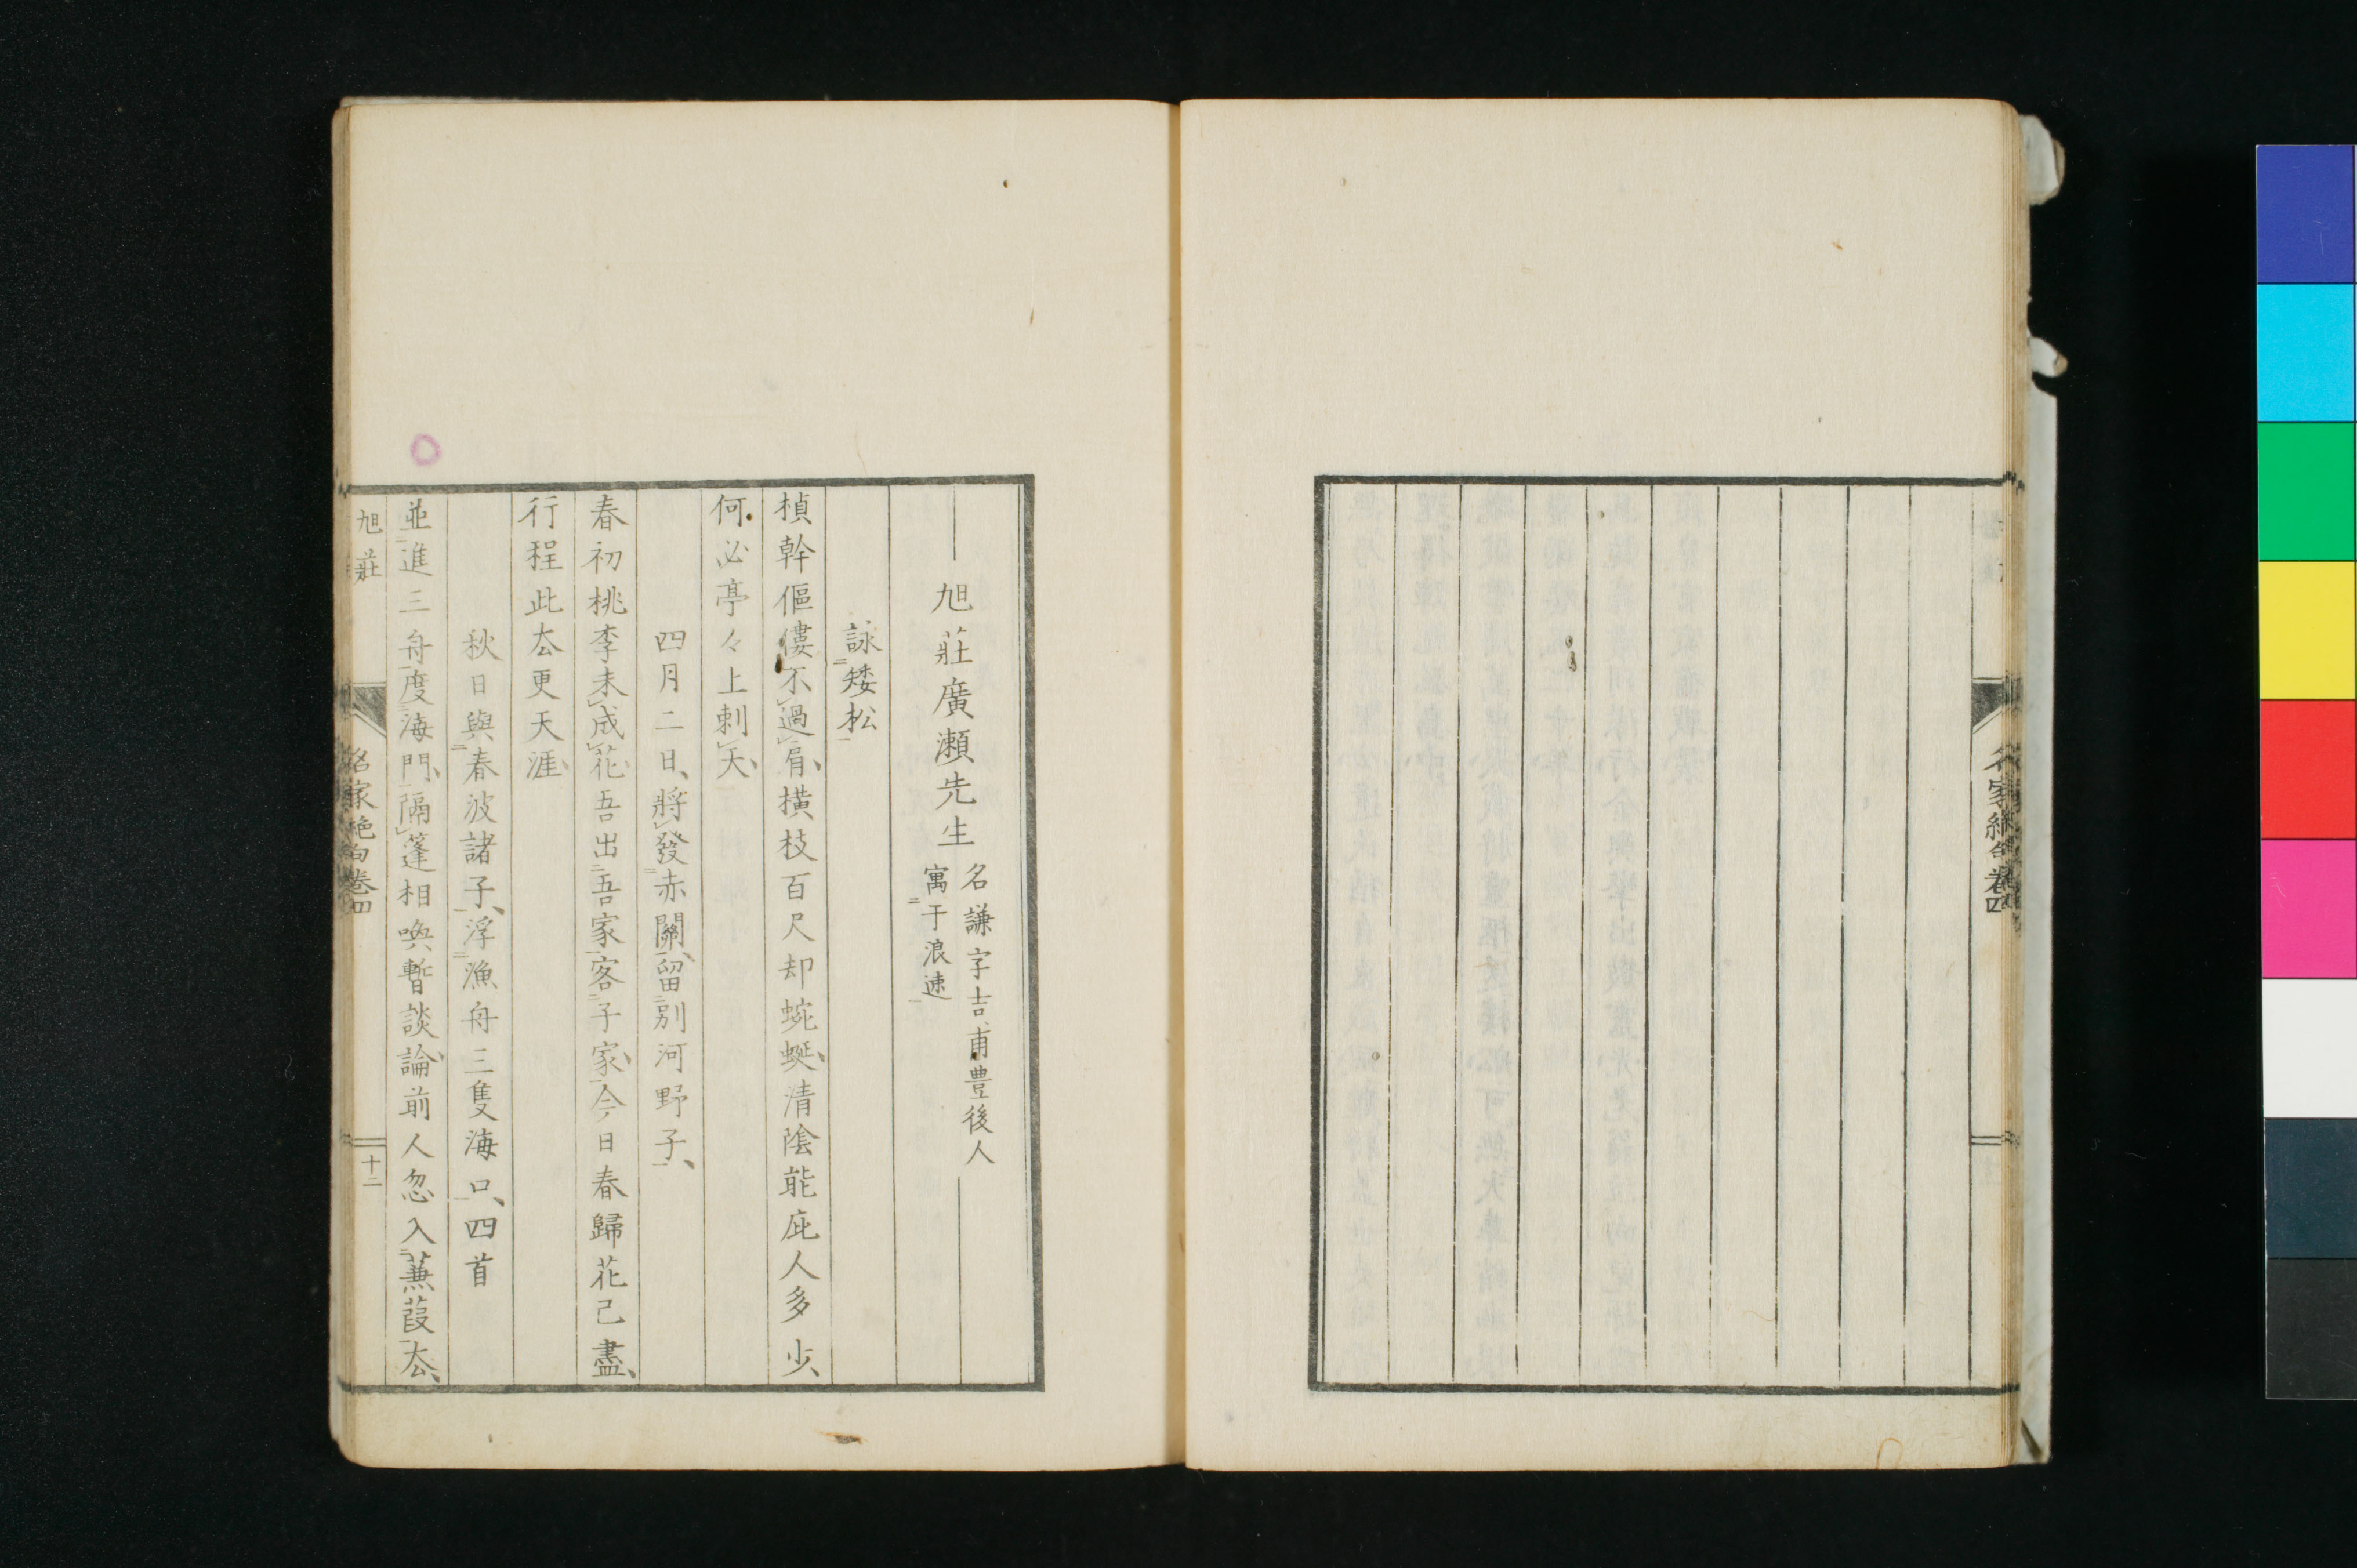 名家絶句卷四
旭莊廣瀬先生
名謙字吉甫豊後人
寓于浪速
詠矮松
楨幹傴僂不過肩横枝百尺却蜿蜒清陰能庇人多少
何必亭々上刺天
四月二日將發赤關留別河野子
春初桃李未成花吾出吾家客子家今日春歸花已盡
行程此厺更天涯
秋日與春波諸子浮漁舟三隻海口四首
並進三舟度海門隔篷相喚暫談論前人忽入蒹葭厺
旭莊
名家絶句卷四
十二